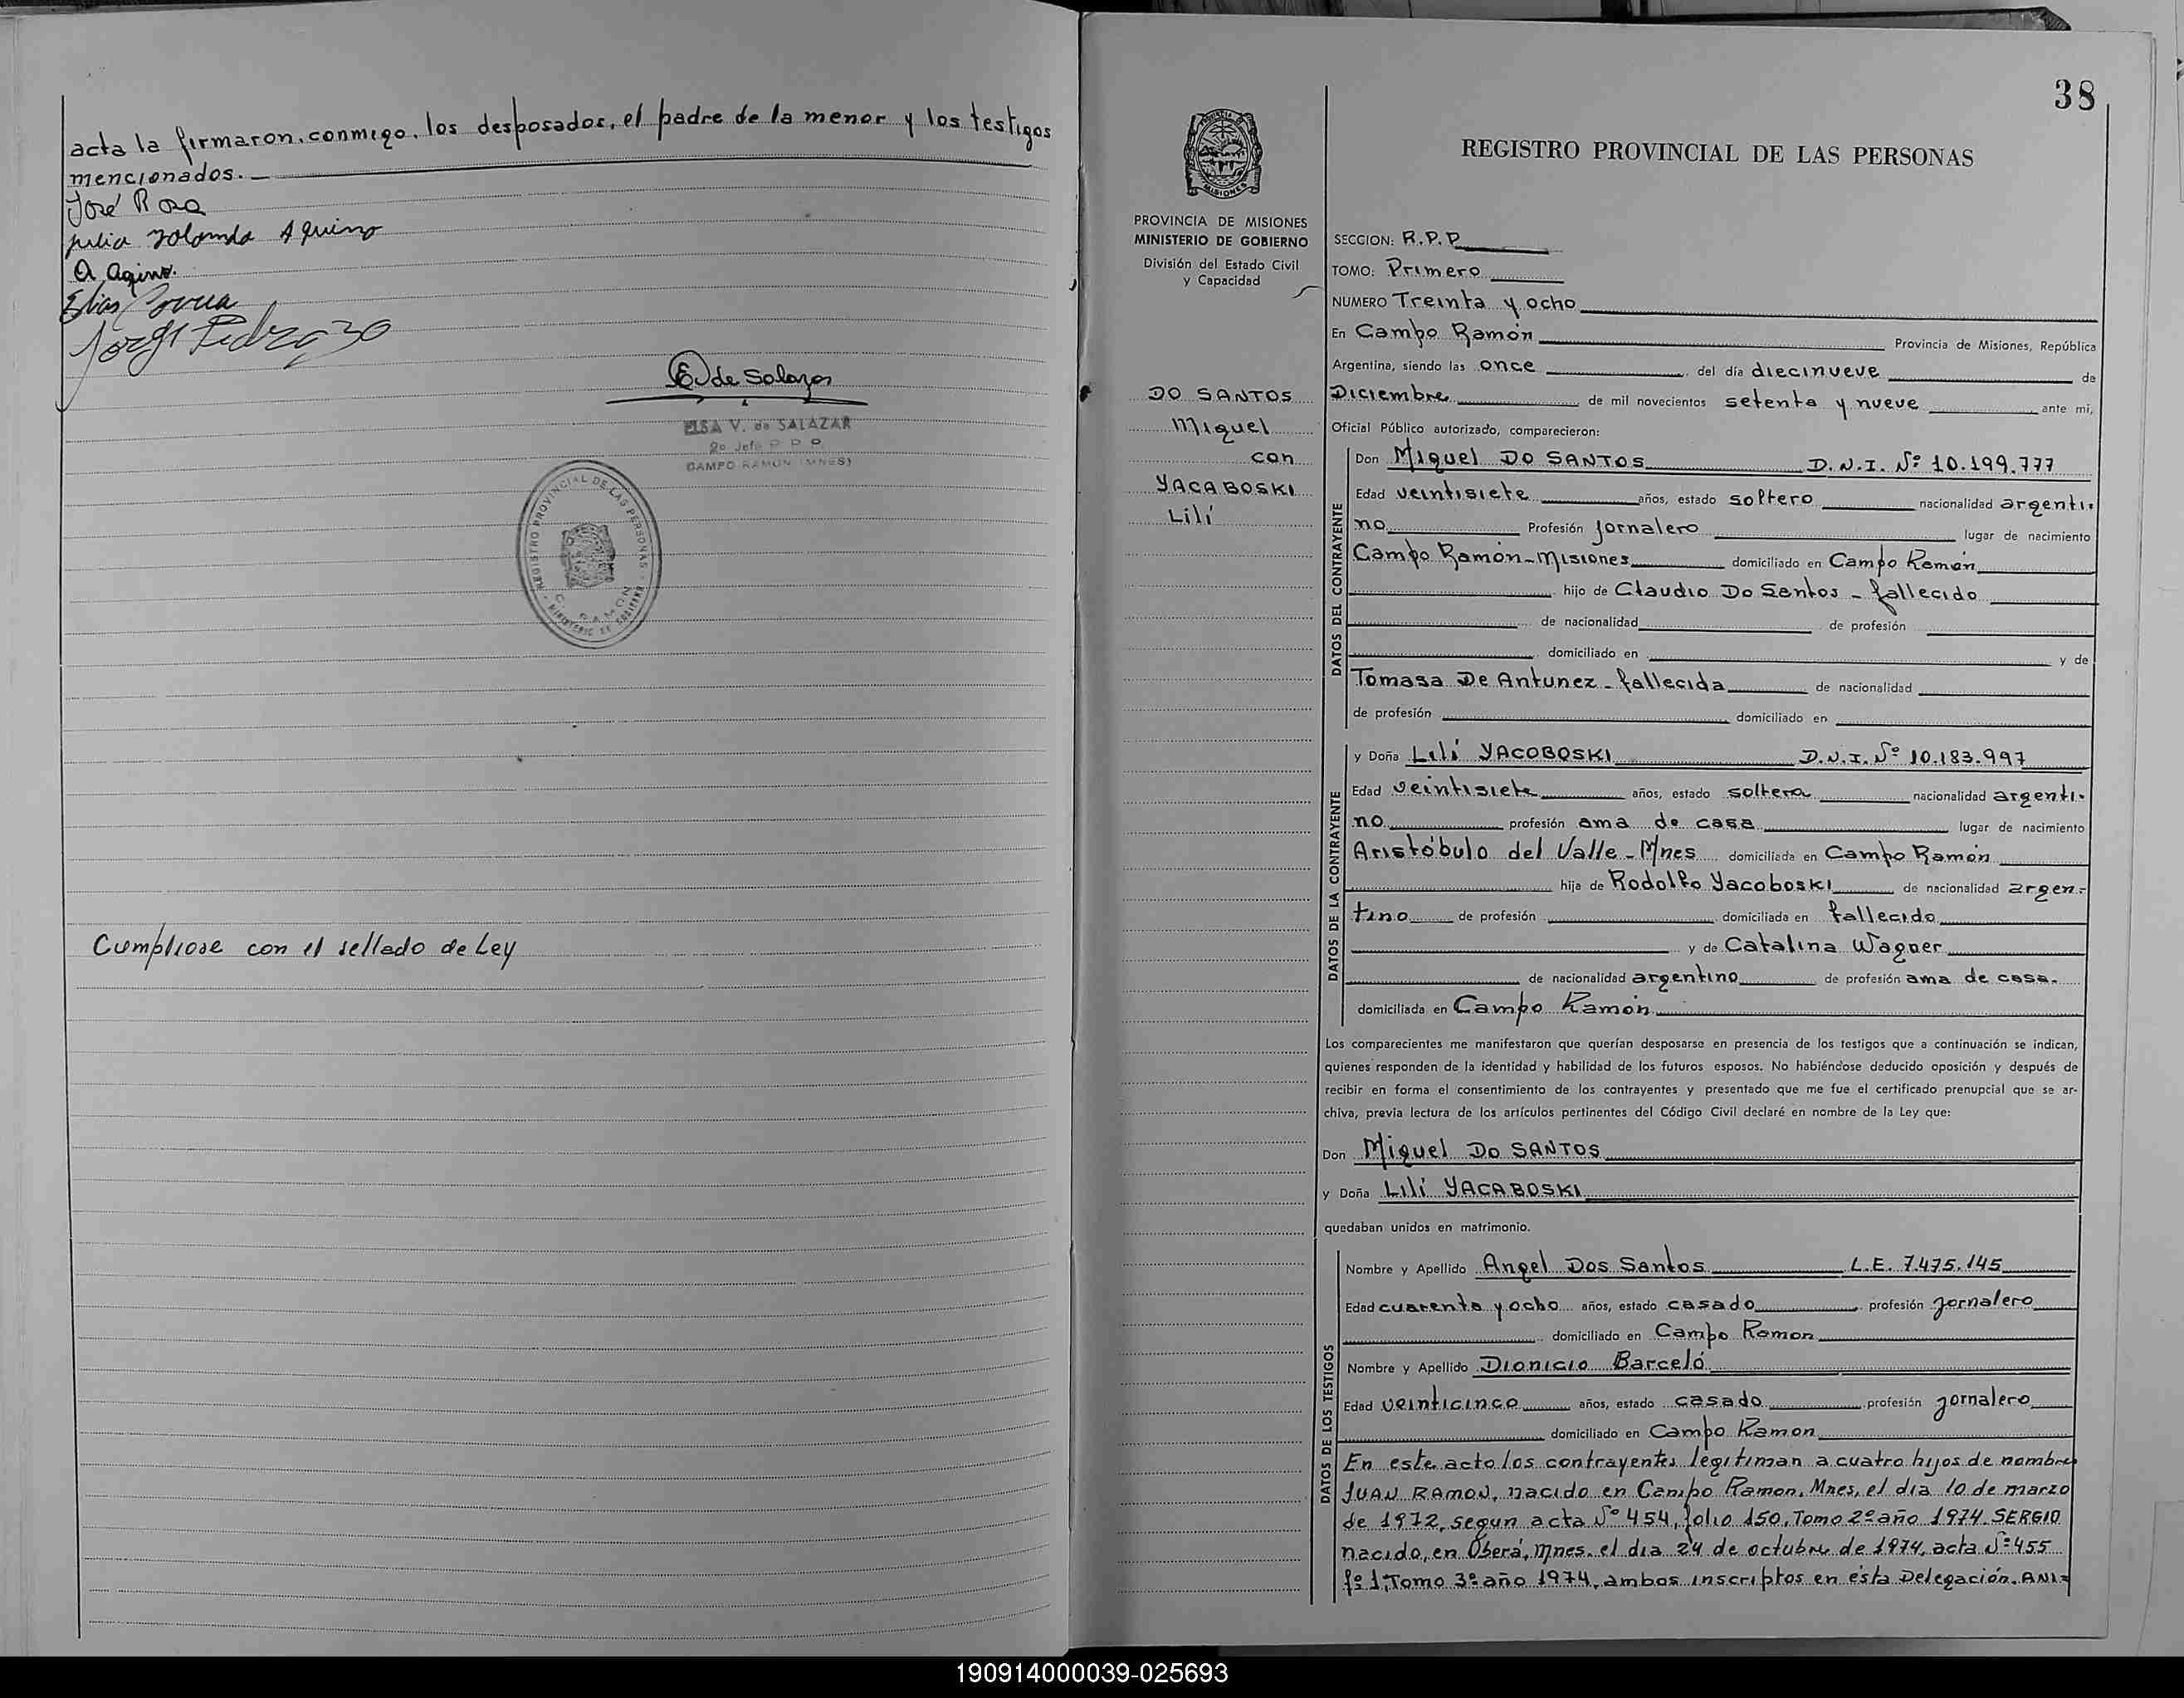 acta la firmaron, conmigo, los desposados, el padre de la menor y los testigos
mencionados.
José Rosa
Julia Yolanda Aquino
A Aquino.
Elias Correa
Jorge Pedrozo
E. de Salazar
ELSA V. de SALAZAR
CAMPO RAMON (MNES)
REGISTRO PROVINCIAL DE LAS PERSONAS
C. RAMON
Cumpliose con el sellado de Ley
38
MISIONES
PROVINCIA DE MISIONES
MINISTERIO DE GOBIERNO
División del Estado Civil
y Capacidad
DO SANTOS
Miguel
con
YACABOSKI
Lilí
REGISTRO PROVINCIAL DE LAS PERSONAS
SECCION: R.P.P
TOMO: Primero
NUMERO Treinta y ocho
En Campo Ramón Provincia de Misiones, República
Argentina, siendo las once del día diecinueve de
Diciembre de mil novecientos setenta y nueve ante mi,
Oficial Público autorizado, comparecieron:
DATOS DEL CONTRAYENTE
Don Miguel DO SANTOS D.N.I. Nº 10.199.777
Edad veintisiete años, estado soltero nacionalidad argenti-
no Profesión jornalero lugar de nacimiento
Campo Ramón-Misiones domiciliado en Campo Ramón
hijo de Claudio Do Santos - fallecido
de nacionalidad de profesión
domiciliado en y de
Tomasa De Antunez - fallecida de nacionalidad
de profesión domiciliado en
DATOS DE LA CONTRAYENTE
y Doña Lilí YACOBOSKI D.N.I. Nº 10.183.997
Edad veintisiete años, estado soltera nacionalidad argenti-
no profesión ama de casa lugar de nacimiento
Aristóbulo del Valle - Mnes domiciliada en Campo Ramón
hija de Rodolfo Yacoboski de nacionalidad argen-
tino de profesión domiciliada en fallecido
y de Catalina Wagner
de nacionalidad argentino de profesión ama de casa.
domiciliada en Campo Ramón
Los comparecientes me manifestaron que querían desposarse en presencia de los testigos que a continuación se indican,
quienes responden de la identidad y habilidad de los futuros esposos. No habiéndose deducido oposición y después de
recibir en forma el consentimiento de los contrayentes y presentado que me fue el certificado prenupcial que se ar-
chiva, previa lectura de los artículos pertinentes del Código Civil declaré en nombre de la Ley que:
Don Miguel DO SANTOS
y Doña Lilí YACABOSKI
quedaban unidos en matrimonio.
DATOS DE LOS TESTIGOS
Nombre y Apellido Angel Dos Santos L.E. 7.475.145
Edad cuarenta y ocho años, estado casado profesión jornalero
domiciliado en Campo Ramon
Nombre y Apellido Dionicio Barceló
Edad veinticinco años, estado casado profesión jornalero
domiciliado en Campo Ramon
En este acto los contrayentes legitiman a cuatro hijos de nombre
JUAN RAMON, nacido en Campo Ramon, Mnes, el día 10 de marzo
de 1972, segun acta Nº 454, folio 150, Tomo 2º año 1974. SERGIO
nacido, en Oberá, Mnes. el dia 24 de octubre de 1974, acta Nº 455
fº 1, Tomo 3º año 1974, ambos inscriptos en esta Delegación. ANI=
190914000039-025693